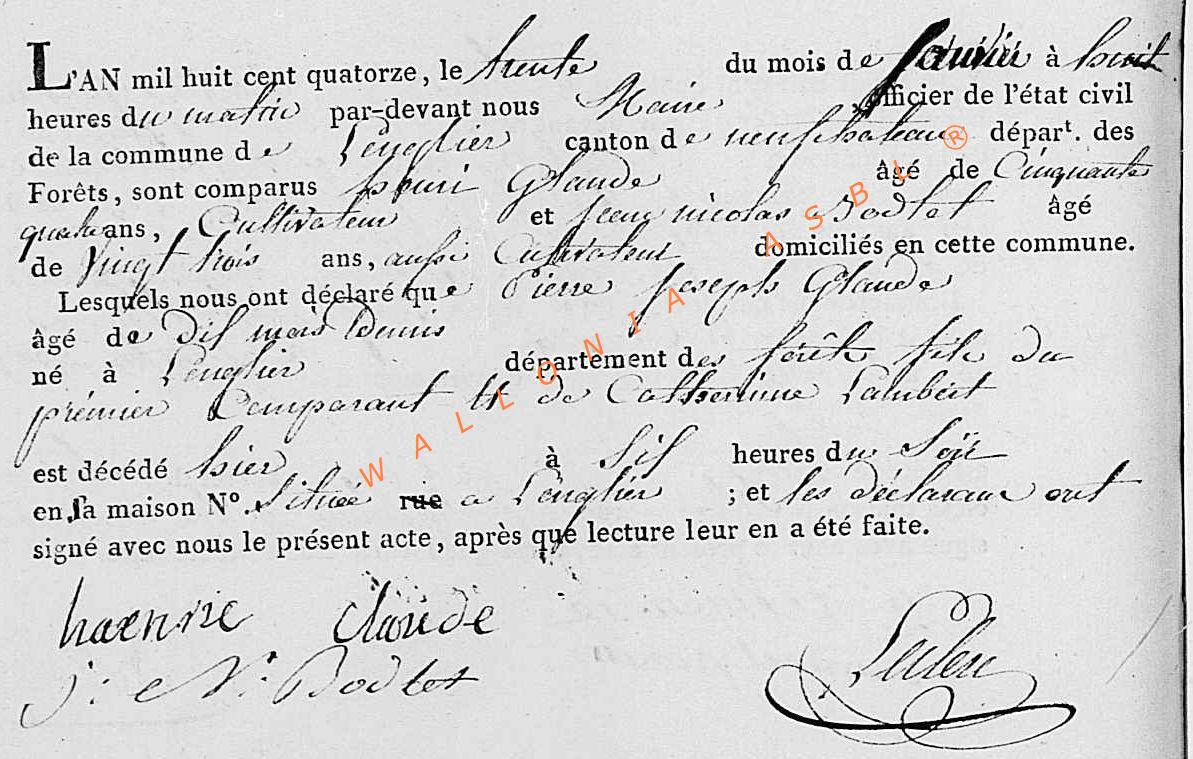 L'AN mil huit cent quatorze, le trente du mois de Janvier à huit
heures du matin par-devant nous Maire officier de l'état civil
de la commune de Lenglier canton de neufchateau départ. des
Forêts, sont comparus henri Glaude âgé de Cinquante
quatre ans, Cultivateur et jean nicolas Bodlet âgé
de Vingt trois ans, aussi Cultivateur domiciliés en cette commune.
Lesquels nous ont déclaré que Pierre joseph Glaude
âgé de dis mois demis
né à Lenglier département des forêts fils du
prémier Comparant et de Catherinne Lambert
est décédé hier à sis heures du Soir
en sa maison N°. Située rue a Lenglier ; et les déclarans ont
signé avec nous le présent acte, après que lecture leur en a été faite.
haenrie Claude
j: N: Bodlet
WALLONIA ASBL ®